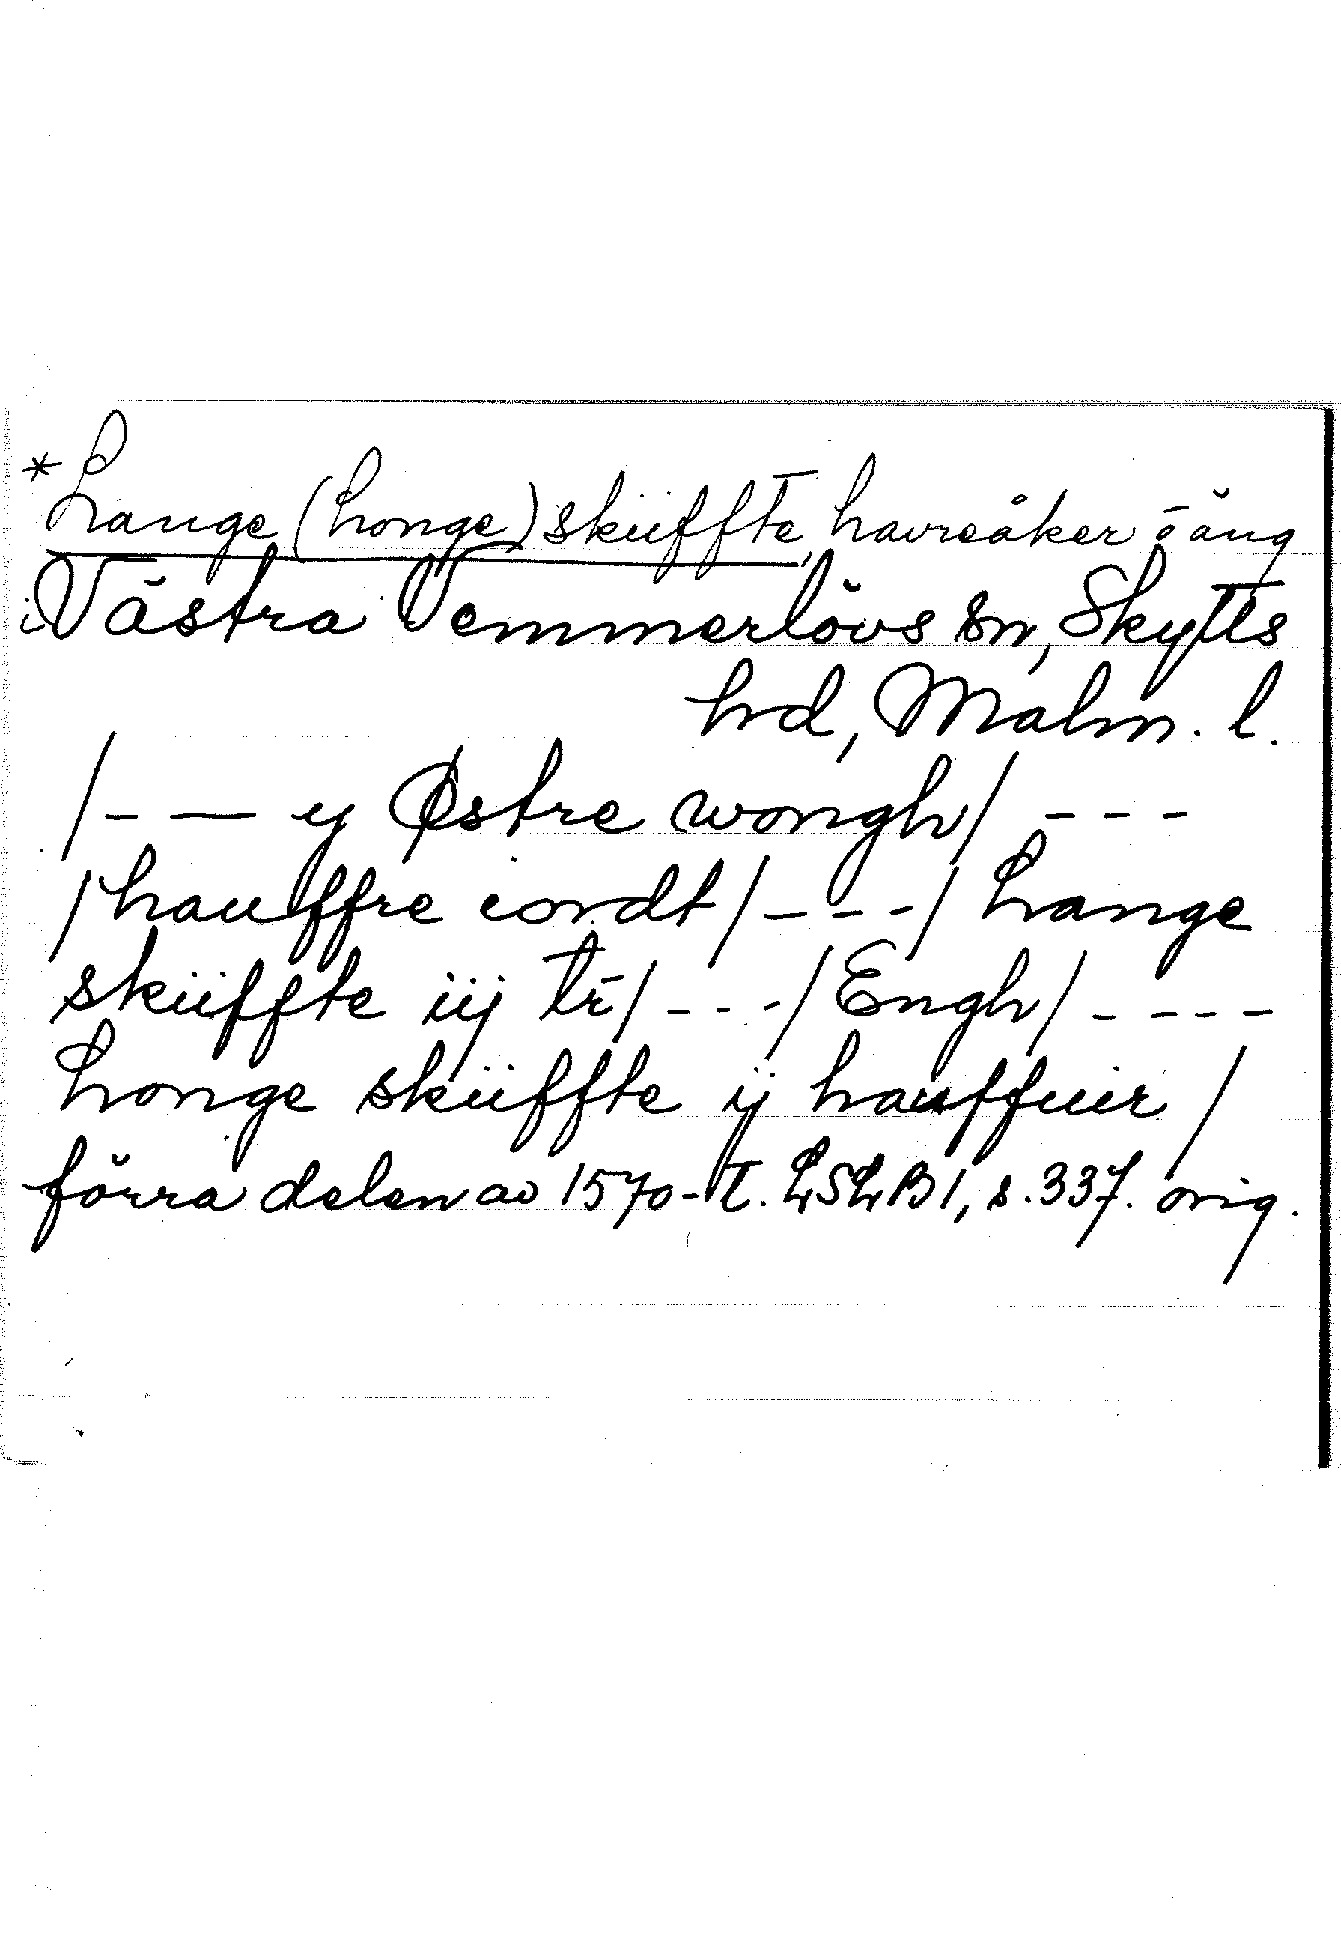 *Lange (Longe) skiiffte, havreåker o äng
i Västra Vemmerlövs sn, Skytts
hd, Malm. l.
/--- y Østre wongh/ ---
/hauffre iordt/---/ Lange
skiiffte iij tr̄/---/Engh/----
Longe skiiffte ij hauffuir /
förra delen av 1570-t. LSLB1, s. 337. orig.